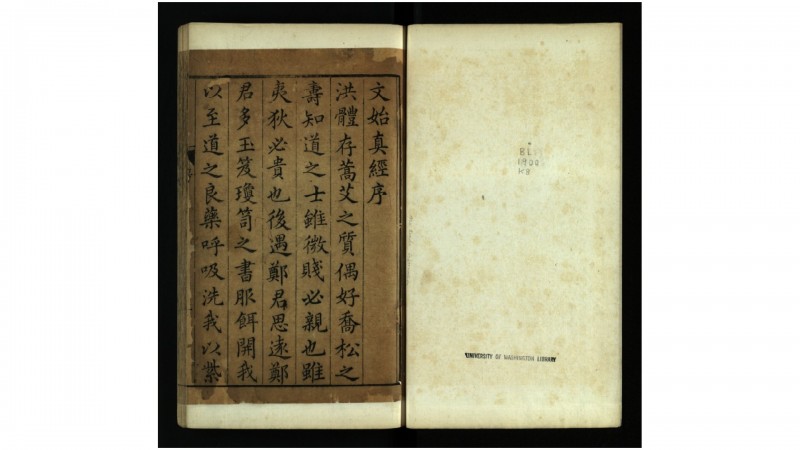 文始真經序
洪體存蒿艾之質偶好喬松之
壽知道之士雖微賤必親也雖
夷狄必貴也後遇鄭君思遠鄭
君多玉笈瓊笥之書服餌開我
以至道之良藥呼吸洗我以紫
BL
1900
K8
UNIVERSITY OF WASHINGTON LIBRARY